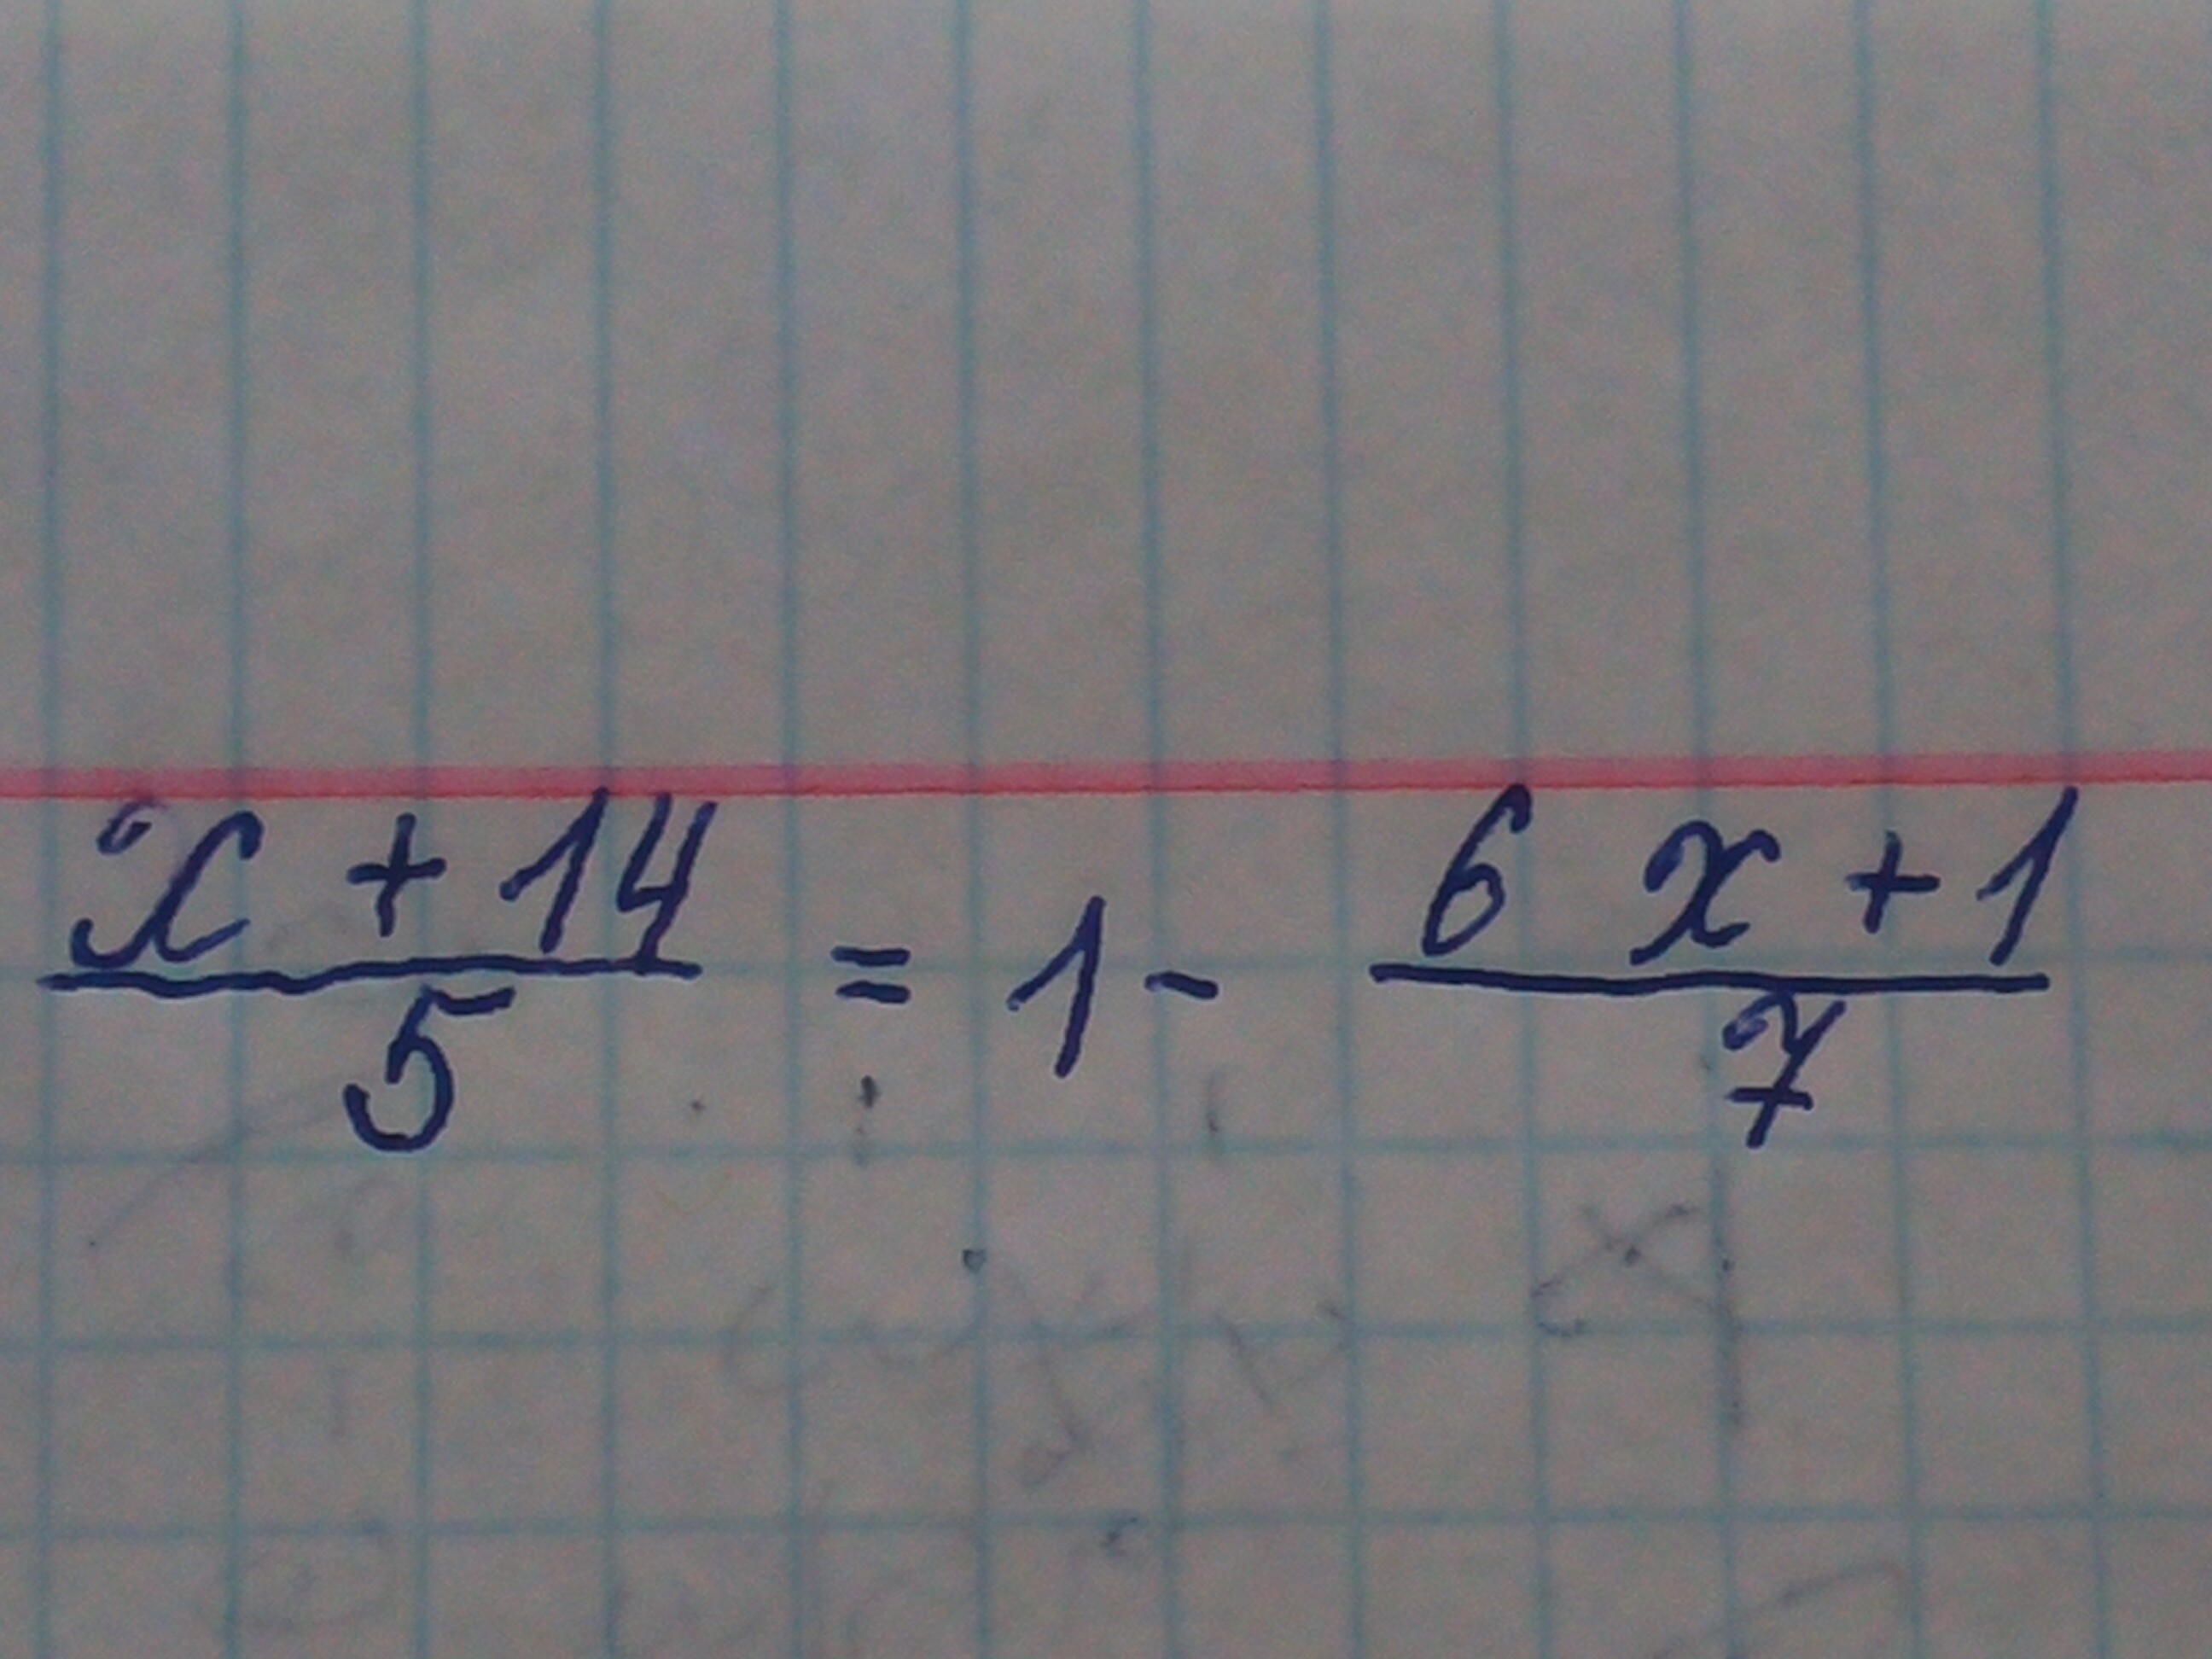 (x + 14)/5 = 1 - (6x + 1)/7